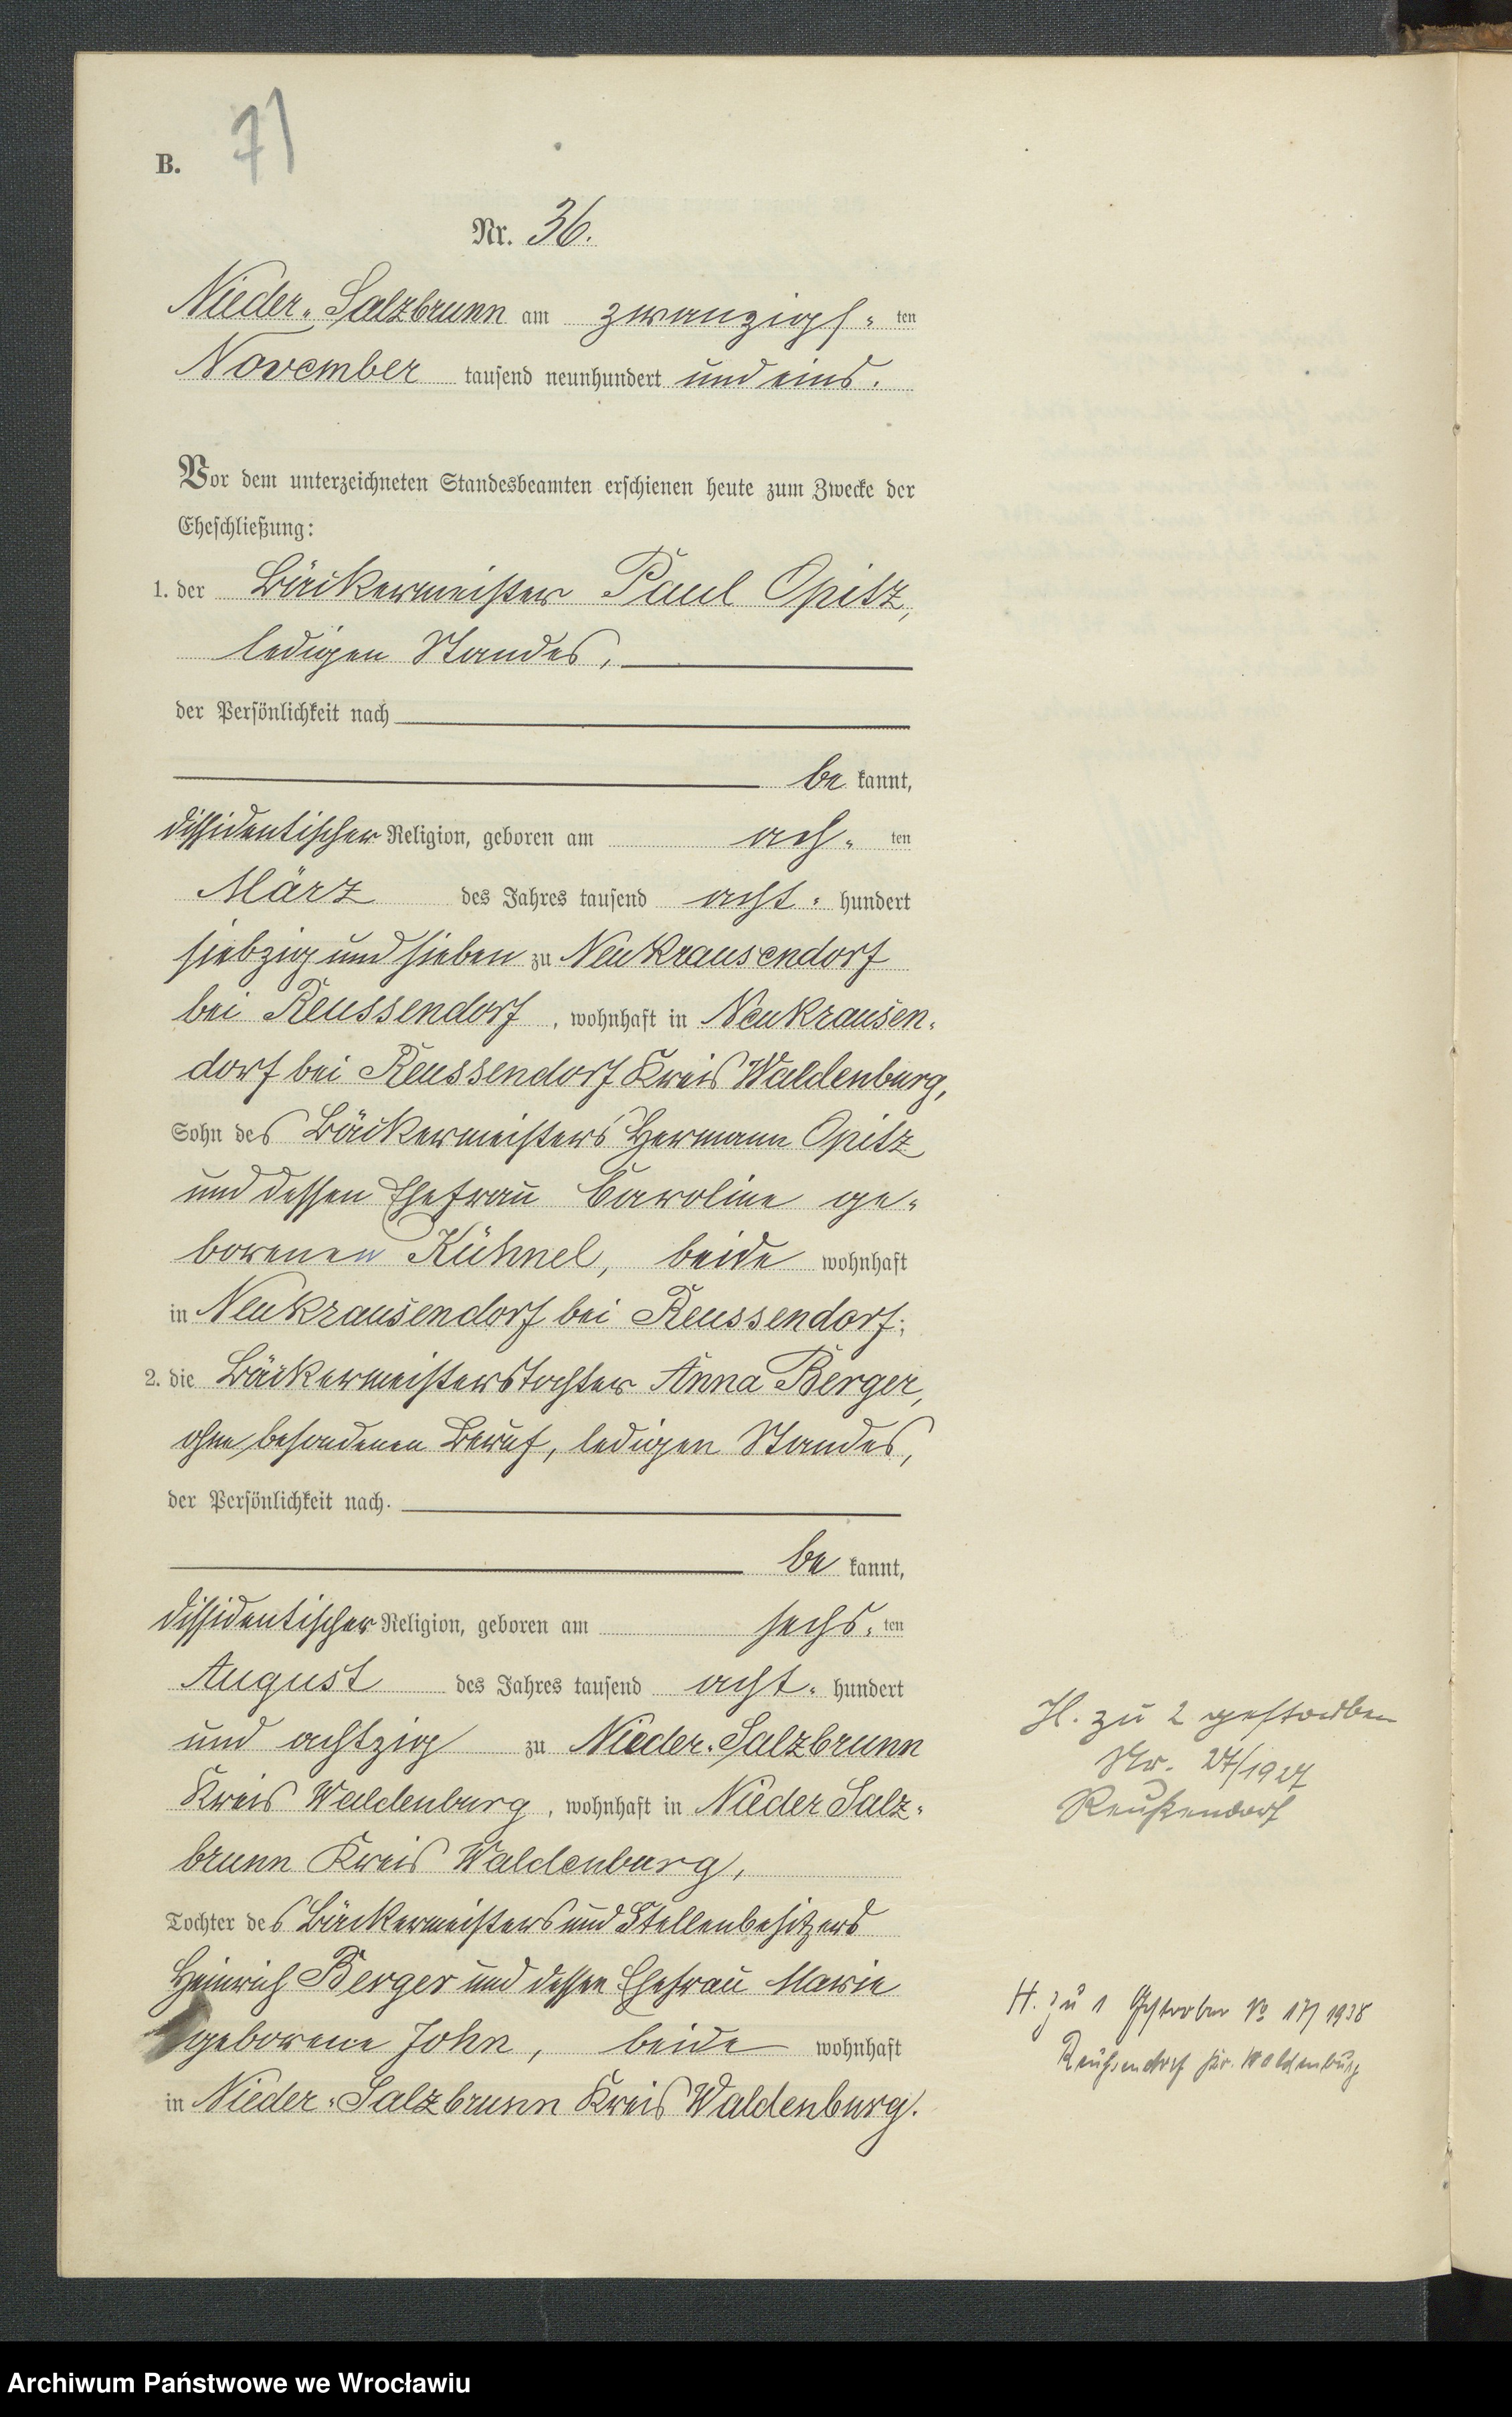 71
B.
Nr. 36.
Nieder-Salzbrunn am zwanzigs- ten
November tausend neunhundert und eins.
Vor dem unterzeichneten Standesbeamten erschienen heute zum Zwecke der
Eheschließung:
1. der Bäckermeister Paul Opitz,
ledigen Standes,
der Persönlichkeit nach
be kannt,
dissidentischer Religion, geboren am ach- ten
März des Jahres tausend acht- hundert
siebzig und sieben zu Neukrausendorf
bei Reussendorf, wohnhaft in Neukrausen-
dorf bei Reussendorf Kreis Waldenburg,
Sohn des Bäckermeisters Hermann Opitz
und dessen Ehefrau Caroline ge-
borenen Kühnel, beide wohnhaft
in Neukrausendorf bei Reussendorf;
2. die Bäckermeisterstochter Anna Berger,
ohne besonderen Beruf, ledigen Standes,
der Persönlichkeit nach.
be kannt,
dissidentischer Religion, geboren am sechs- ten
August des Jahres tausend acht- hundert
und achtzig zu Nieder-Salzbrunn
Kreis Waldenburg, wohnhaft in Nieder Salz-
brunn Kreis Waldenburg,
Tochter des Bäckermeisters und Stellenbesitzers
Heinrich Berger und dessen Ehefrau Marie
geborene John, beide wohnhaft
in Nieder-Salzbrunn Kreis Waldenburg.
H. zu 2 gestorben
Nr. 27/1927
Reußendorf
H. zu 1 Gestorben No 17/1938
Reußendorf Kr. Waldenburg
Archiwum Państwowe we Wrocławiu